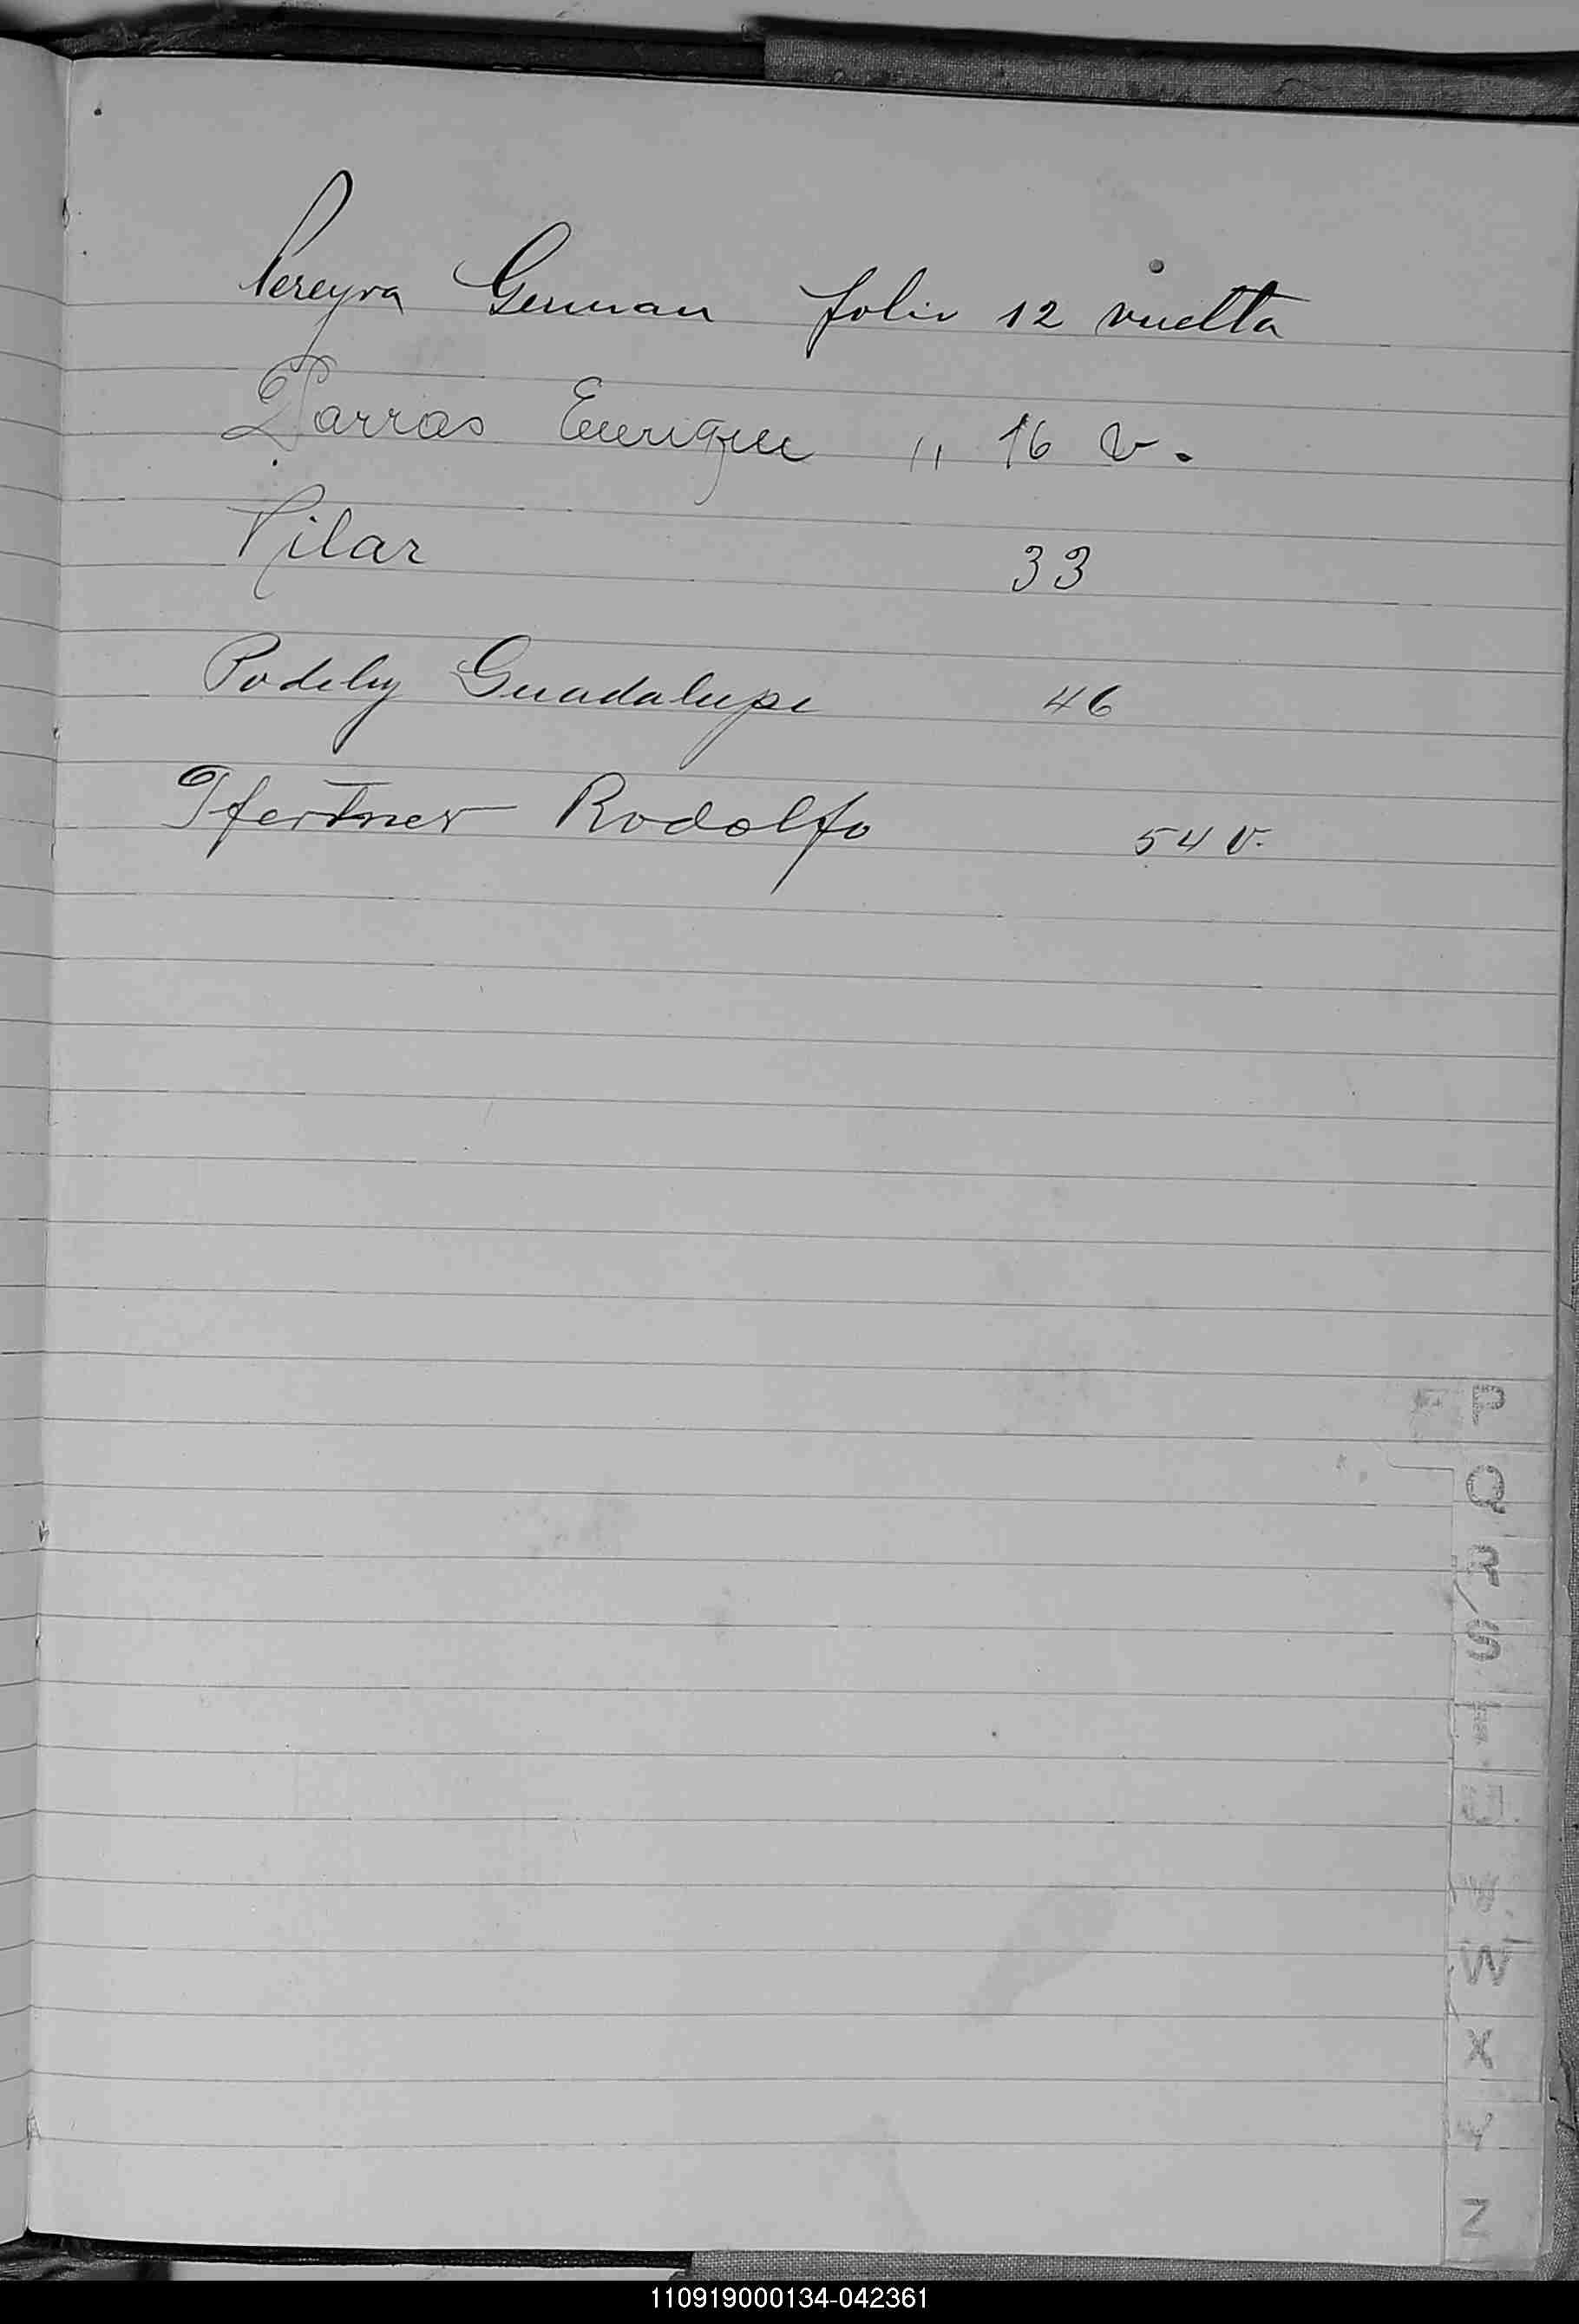 Pereyra German folio 12 vuelta
Parras Enrique " 16 v.
Pilar 33
Podeley Guadalupe 46
Pfertner Rodolfo 54 v.
P
Q
R
S
T
U
V
W
X
Y
Z
110919000134-042361